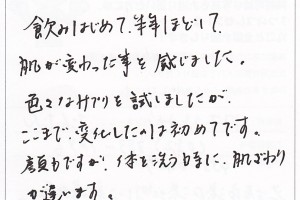 飲みはじめて、半年ほどして、
肌が変わった事を感じました。
色々なサプリを試しましたが、
ここまで変化したのは初めてです。
顔もですが、体を洗う時に、肌ざわり
が違います。